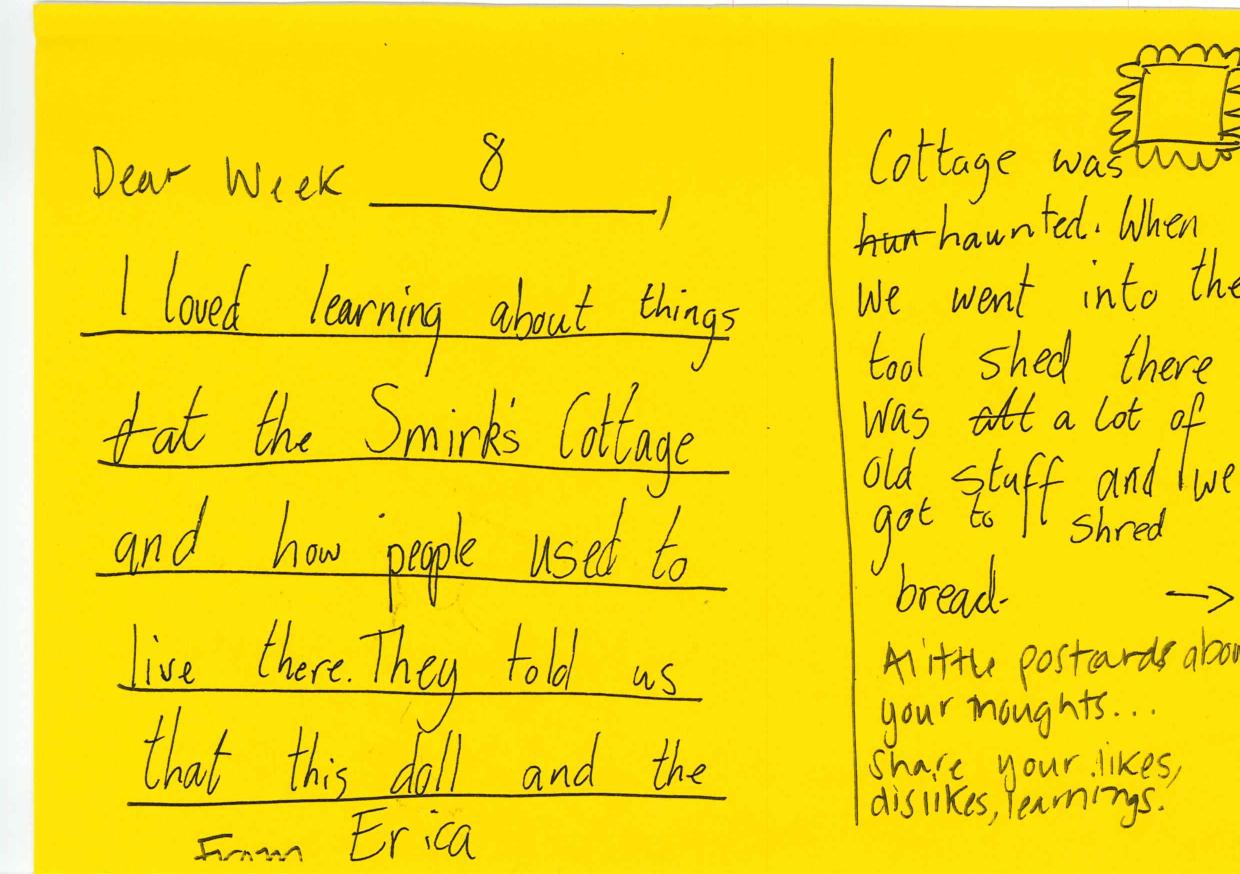 Dear Week 8,
I loved learning about things
at the Smirk's Cottage
and how people used to
live there. They told us
that this doll and the
From Erica
Cottage was
hun haunted. When
We went into the
tool shed there
was alt a lot of
old stuff and we
got to shred
bread. →
A little postcards abou
your thoughts...
share your likes,
dislikes, learnings.